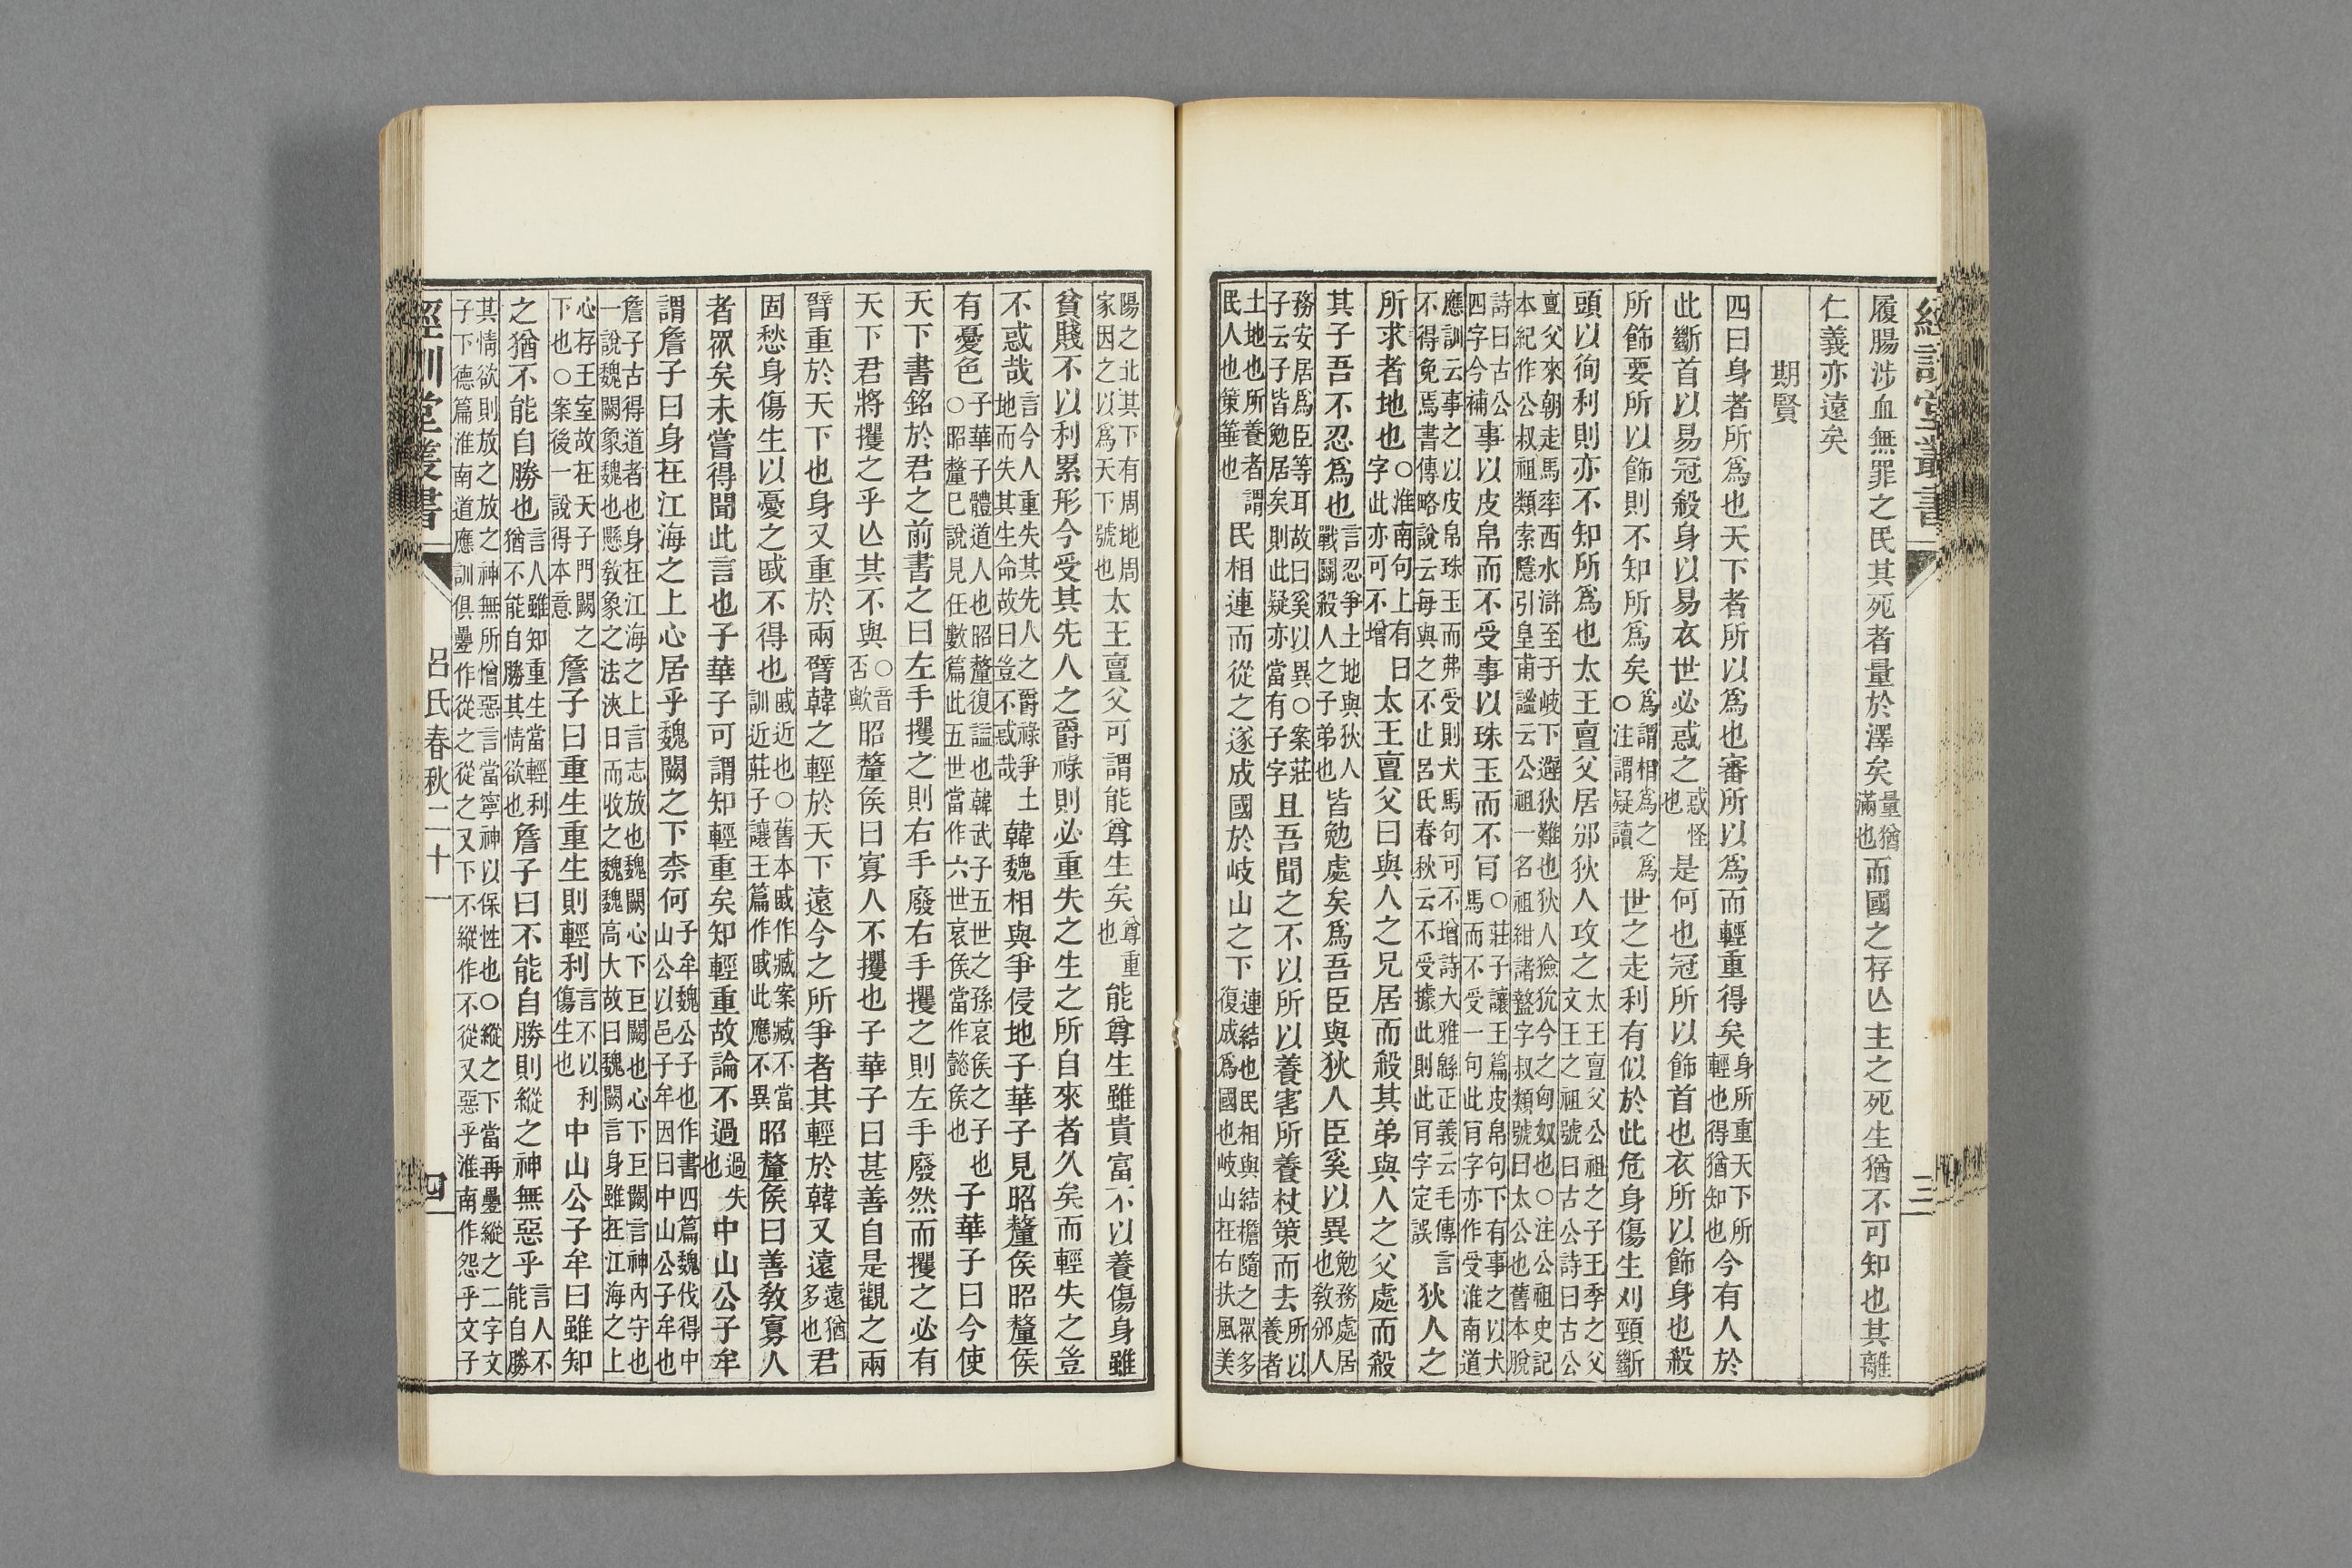 經訓堂叢書　三
履腸涉血無罪之民其死者量於澤矣量猶滿也而國之存亾主之死生猶不可知也其離
仁義亦遠矣
期賢
四曰身者所爲也天下者所以爲也審所以爲而輕重得矣身所重天下所輕也得猶知也今有人於
此斷首以易冠殺身以易衣世必惑之惑怪也是何也冠所以飾首也衣所以飾身也殺
所飾要所以飾則不知所爲矣爲謂相爲之爲○注謂疑讀世之走利有似於此危身傷生刈頸斷
頭以徇利則亦不知所爲也太王亶父居邠狄人攻之太王亶父公祖之子王季之父文王之祖號曰古公詩曰古公
亶父來朝走馬率西水滸至于岐下避狄難也狄人獫狁今之匈奴也○注公祖史記本紀作公叔祖類索隱引皇甫謐云公祖一名祖紺諸盩字叔類號曰太公也舊本脫
詩曰古公四字今補事以皮帛而不受事以珠玉而不肎○莊子讓王篇皮帛句下有事之以犬馬而不受一句此肎字亦作受淮南道
應訓云事之以皮帛珠玉而弗受則犬馬句可不增詩大雅緜正義云毛傳言不得免焉書傳略說云每與之不止呂氏春秋云不受據此則此肎字定誤狄人之
所求者地也○淮南句上有曰字此亦可不增太王亶父曰與人之兄居而殺其弟與人之父處而殺
其子吾不忍爲也言忍爭土地與狄人戰鬭殺人之子弟也皆勉處矣爲吾臣與狄人臣奚以異勉務處居也敎邠人
務安居爲臣等耳故曰奚以異○案莊子云子皆勉居矣則此疑亦當有子字且吾聞之不以所以養害所養杖策而去所以養者
土地也所養者謂民人也策箠也民相連而從之遂成國於岐山之下連結也民相與結檐隨之眾多復成爲國也岐山在右扶風美
陽之北其下有周地周家因之以爲天下號也太王亶父可謂能尊生矣尊重也能尊生雖貴富不以養傷身雖
貧賤不以利累形今受其先人之爵祿則必重失之生之所自來者久矣而輕失之豈
不惑哉言今人重失其先人之爵祿爭土地而失其生命故曰豈不惑哉韓魏相與爭侵地子華子見昭釐侯昭釐侯
有憂色子華子體道人也昭釐復謚也韓武子五世之孫哀侯之子也○昭釐已說見任數篇此五世當作六世哀侯當作懿侯也子華子曰今使
天下書銘於君之前書之曰左手攫之則右手廢右手攫之則左手廢然而攫之必有
天下君將攫之乎亾其不與○音否歟昭釐侯曰寡人不攫也子華子曰甚善自是觀之兩
臂重於天下也身又重於兩臂韓之輕於天下遠今之所爭者其輕於韓又遠遠猶多也君
固愁身傷生以憂之戚不得也戚近也○舊本戚作臧案臧不當訓近莊子讓王篇作戚此應不異昭釐侯曰善敎寡人
者眾矣未嘗得聞此言也子華子可謂知輕重矣知輕重故論不過過失也中山公子牟
謂詹子曰身在江海之上心居乎魏闕之下柰何子牟魏公子也作書四篇魏伐得中山公以邑子牟因曰中山公子牟也
詹子古得道者也身在江海之上言志放也魏闕心下巨闕也心下巨闕言神內守也一說魏闕象魏也懸敎象之法浹日而收之魏魏高大故曰魏闕言身雖在江海之上
心存王室故在天子門闕之下也○案後一說得本意詹子曰重生重生則輕利言不以利傷生也中山公子牟曰雖知
之猶不能自勝也言人雖知重生當輕利猶不能自勝其情欲也詹子曰不能自勝則縱之神無惡乎言人不能自勝
其情欲則放之放之神無所憎惡言當寧神以保性也○縱之下當再疊縱之二字文子下德篇淮南道應訓俱疊作從之從之又下不縱作不從又惡乎淮南作怨乎文子
經訓堂叢書　呂氏春秋二十一　四